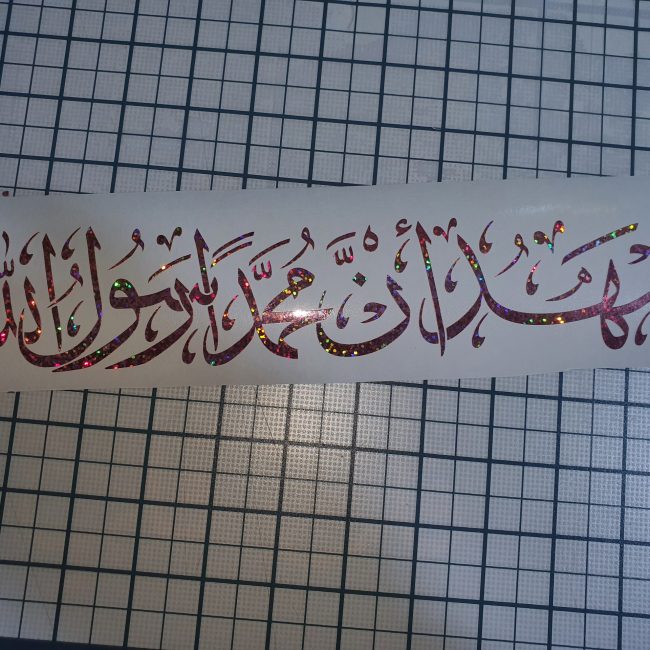 أشهد أنَّ مُحمَّداً رسُولُ اللّٰه